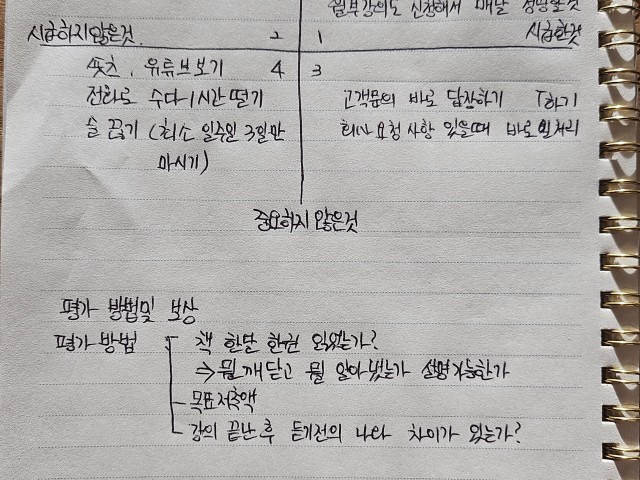 월부강의도 신청해서 매달 성장할것
시급하지 않은것. 2 1 시급한것
숏츠, 유튜브보기 4 3
전화로 수다 1시간 떨기 고객문의 바로 답장하기
술 끊기 (최소 일주일 3일만 회사 요청 사항 있을때 바로 일처리
마시기)
중요하지 않은것
평가 방법및 보상
평가 방법 책 한달 한권 읽었는가?
⇒ 뭘 깨닫고 뭘 알아냈는가 설명가능한가
목표저축액
강의 끝난 후 듣기전의 나랑 차이가 있는가?